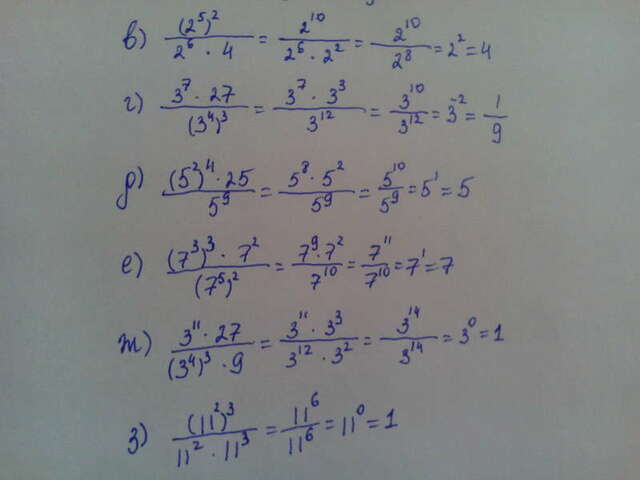 в) (2⁵)² / 2⁶ · 4 = 2¹⁰ / 2⁶ · 2² = 2¹⁰ / 2⁸ = 2² = 4
г) 3⁷ · 27 / (3⁴)³ = 3⁷ · 3³ / 3¹² = 3¹⁰ / 3¹² = 3⁻² = 1 / 9
д) (5²)⁴ · 25 / 5⁹ = 5⁸ · 5² / 5⁹ = 5¹⁰ / 5⁹ = 5¹ = 5
е) (7³)³ · 7² / (7⁵)² = 7⁹ · 7² / 7¹⁰ = 7¹¹ / 7¹⁰ = 7¹ = 7
ж) 3¹¹ · 27 / (3⁴)³ · 9 = 3¹¹ · 3³ / 3¹² · 3² = 3¹⁴ / 3¹⁴ = 3⁰ = 1
з) (11²)³ / 11² · 11³ = 11⁶ / 11⁶ = 11⁰ = 1